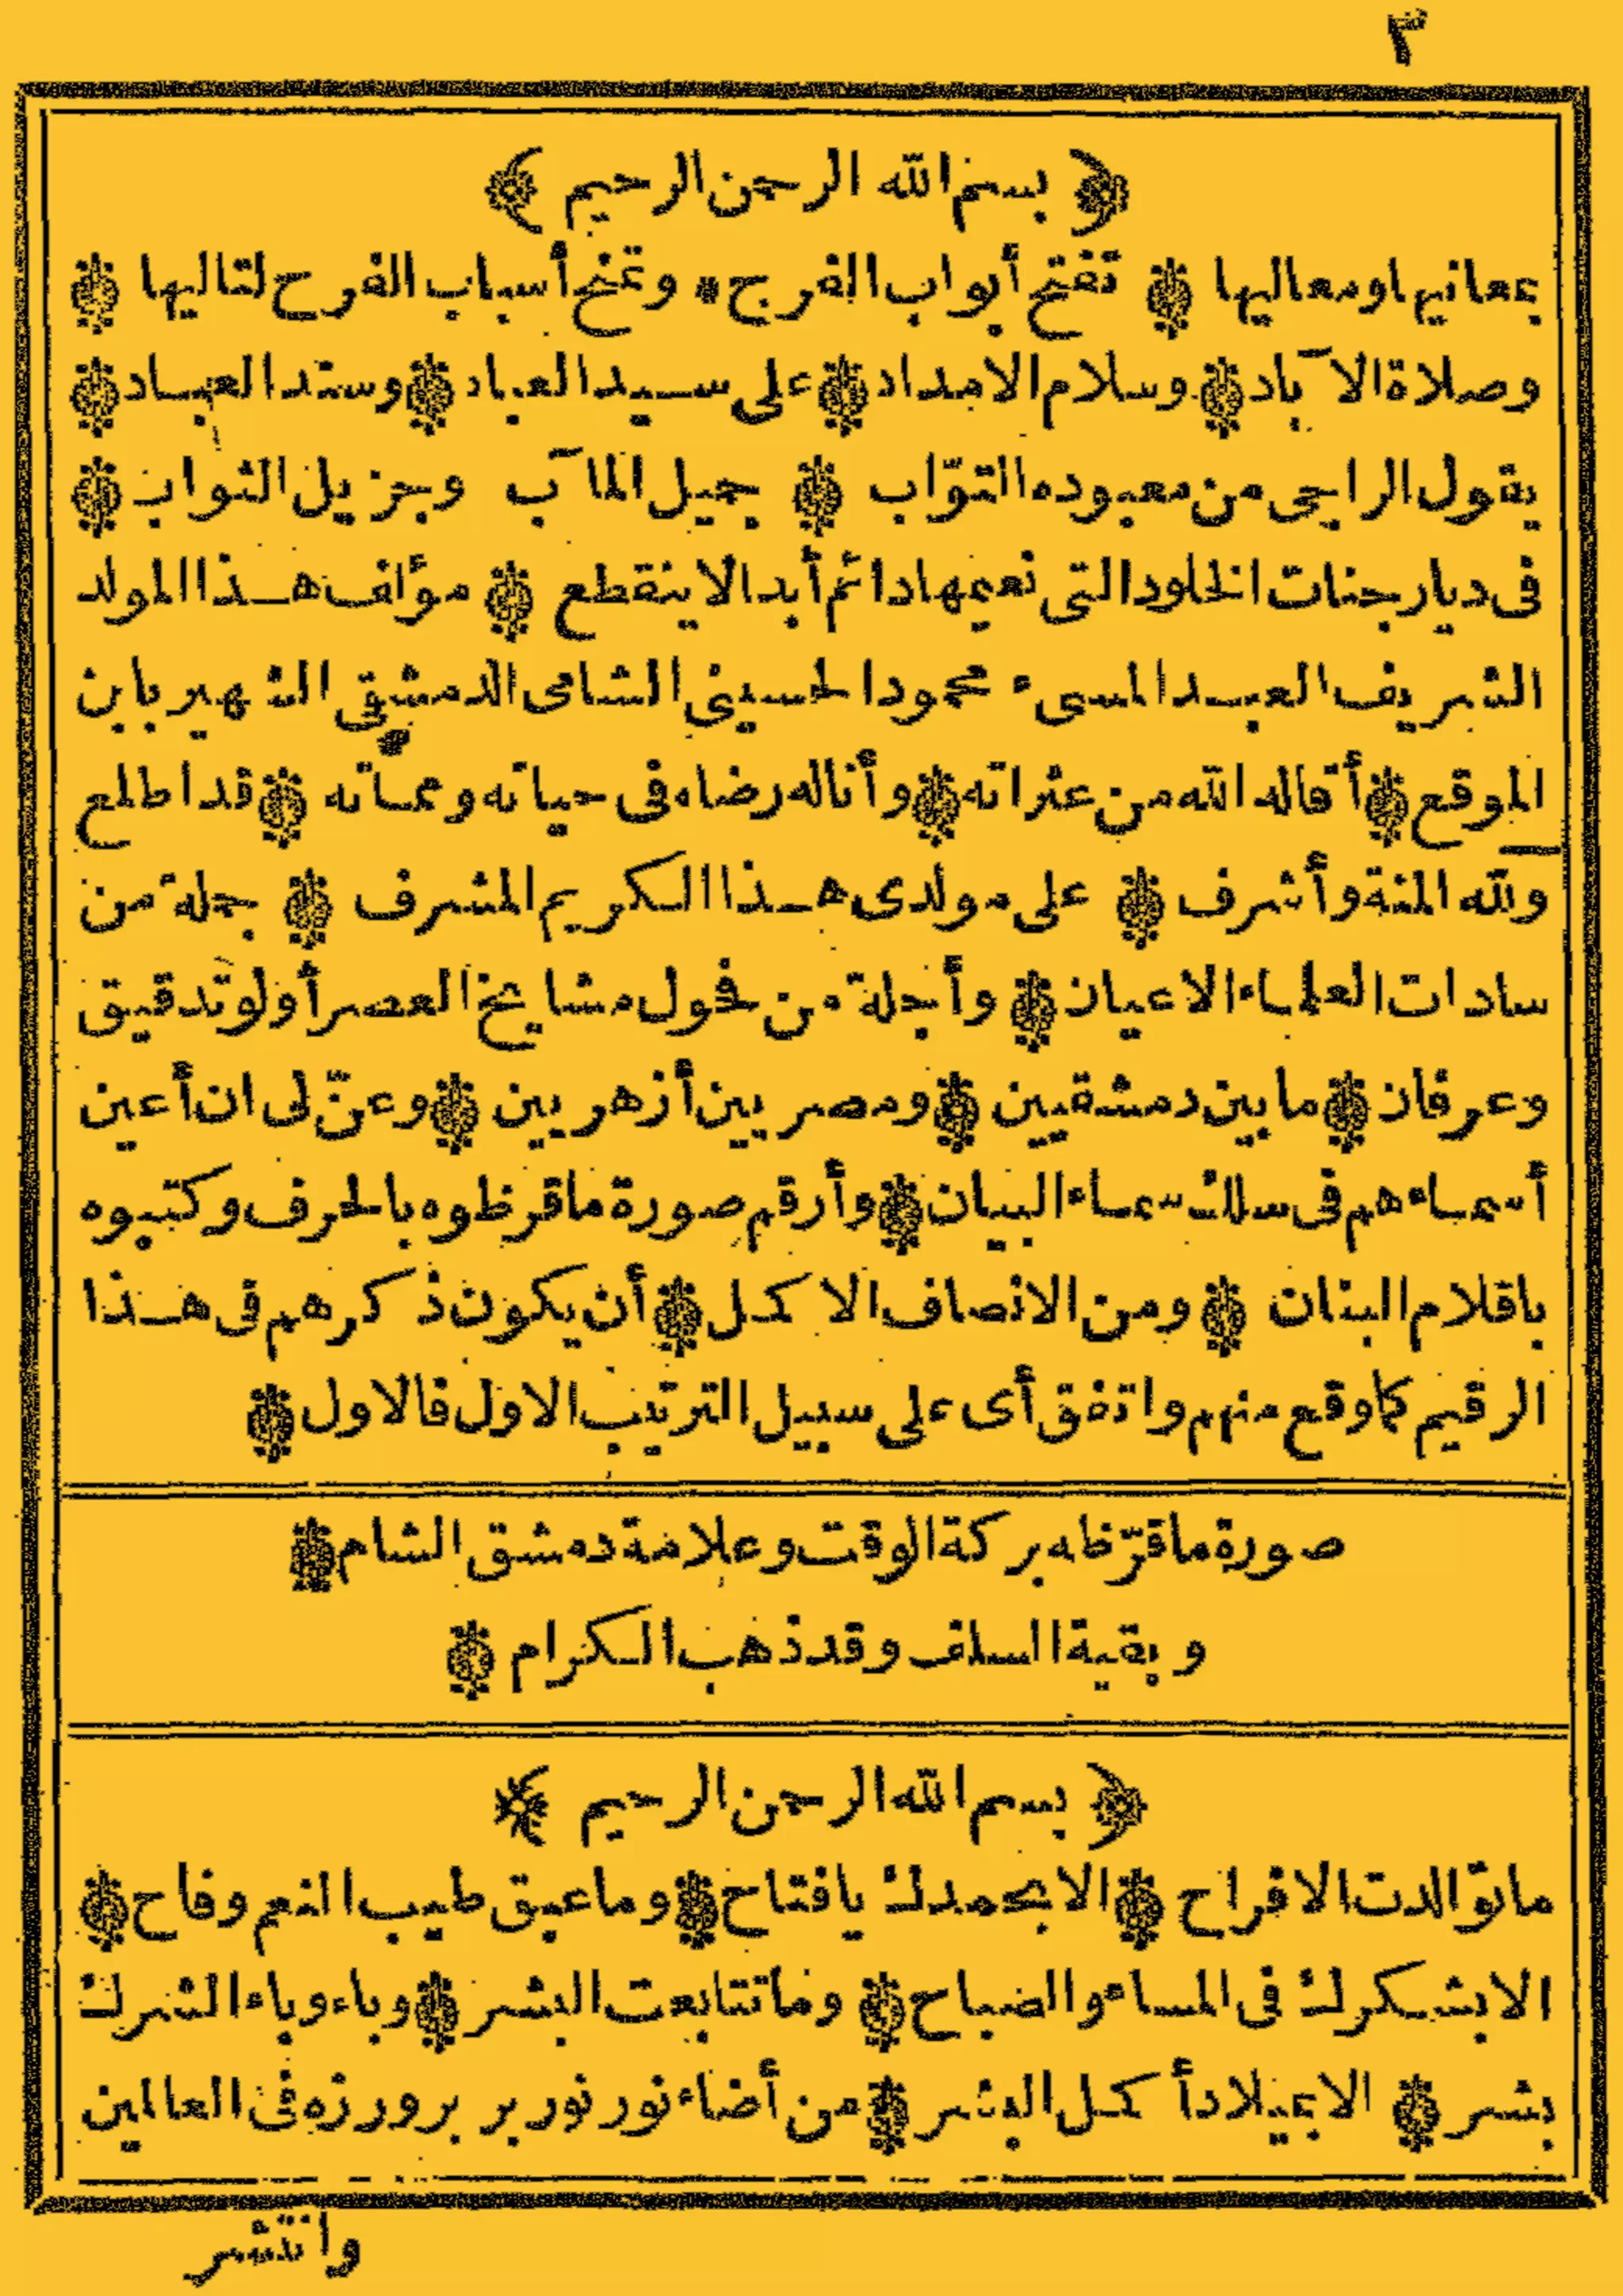 ٣
﴿ بسم الله الرحمن الرحيم ﴾
بمعانيها ومعاليها ❁ تفتح أبواب الفرج * وتمنح أسباب الفرح لتاليها ❁
وصلاة الآباد ❁ وسلام الامداد ❁ على سيد العباد ❁ وسند العباد ❁
يقول الراجى من معبوده التوّاب ❁ جميل المآب وجزيل الثواب ❁
فى ديار جنات الخلود التى نعيمها دائم أبدا لا ينقطع ❁ مؤلف هذا المولد
الشريف العبد المسىء محمود الحسينى الشامى الدمشقى الشهير بابن
الموقع ❁ أقاله الله من عثراته ❁ وأناله رضاه فى حياته ومماته ❁ قد اطلع
ولله المنة وأشرف ❁ على مولدى هذا الكريم المشرف ❁ جملة من
سادات العلماء الاعيان ❁ وأجلة من فحول مشايخ العصر أولو تدقيق
وعرفان ❁ ما بين دمشقيين ❁ ومصريين أزهريين ❁ وعنّ لى ان أعين
أسماءهم فى سلك سماء البيان ❁ وأرقم صورة ما قرظوه بالحرف وكتبوه
باقلام البنان ❁ ومن الانصاف الاكمل ❁ أن يكون ذكرهم فى هذا
الرقيم كما وقع منهم واتفق أى على سبيل الترتيب الاول فالاول ❁
صورة ما قرّظه بركة الوقت وعلامة دمشق الشام ❁
وبقية السلف وقد ذهب الكرام ❁
﴿ بسم الله الرحمن الرحيم ﴾
ما توالدت الافراح ❁ الا بحمدك يا فتاح ❁ وما عبق طيب النعم وفاح ❁
الا بشكرك فى المساء والصباح ❁ وما تتابعت البشر ❁ وباء وباء الشرك
بشر ❁ الا بميلاد أكمل البشر ❁ من أضاء نور نور بر بروزه فى العالمين
وانتشر